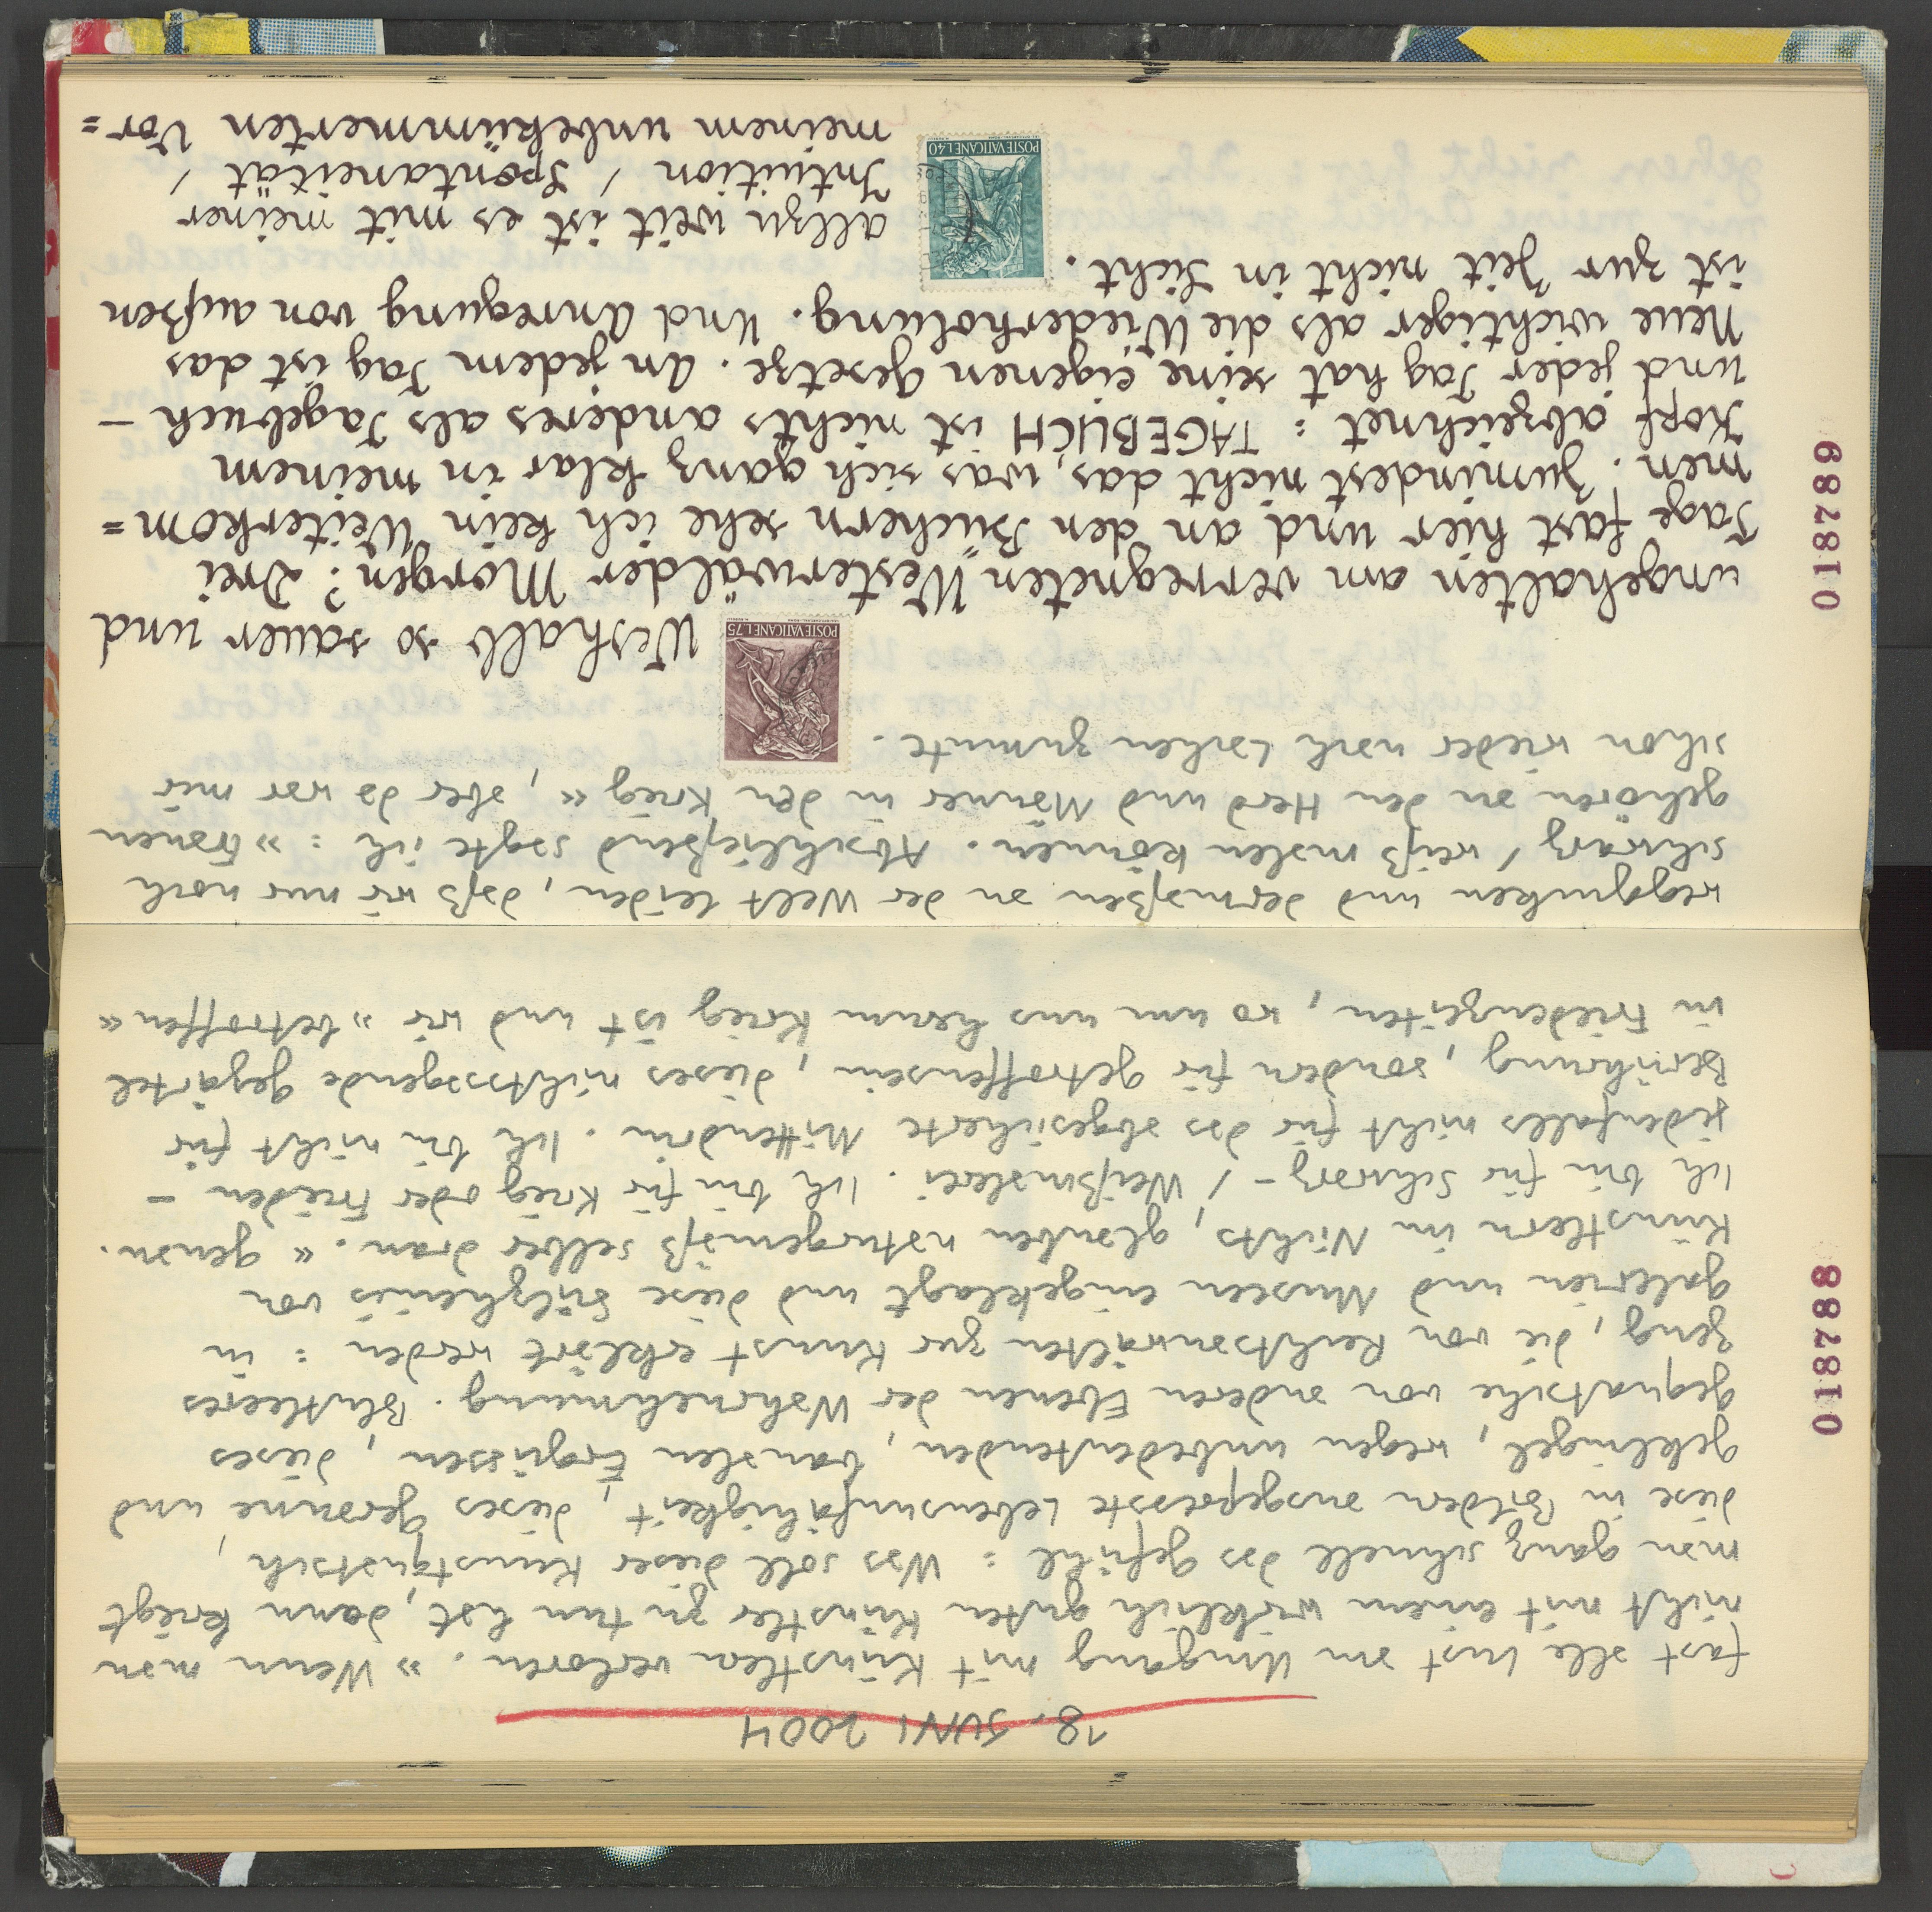 18. JUNI 2004
fast alle Lust am Umgang mit Künstlern verloren. »Wenn man
nicht mit einem wirklich guten Künstler zu tun hat, dann kriegt
man ganz schnell das Gefühl: Was soll dieser Kunstquatsch,
diese in Bildern ausgepresste Lebensunfähigkeit, dieses Gerinne und
Geklingel, wegen unbedeutenden, banalen Ergüssen, dieses
Gequatsche von anderen Ebenen der Wahrnehmung. Blutleeres
Zeug, die von Rechtsanwälten zur Kunst erklärt werden: in
Galerien und Museen eingeklagt und diese von
Künstlern im Nichts, glauben naturgemäß selber dran.« genau.
Ich bin für Schwarz-/Weißmalerei. Ich bin für Krieg oder Frieden –
jedenfalls nicht für das abgesicherte Mittendrin. Ich bin nicht für
Berührung, sondern für Getroffensein, dieses nichtssagende
in Friedenzeiten, wo um uns herum Krieg ist und wir »betroffen«
weggucken und dermaßen an der Welt leiden, daß wir nur noch
schwarz/weiß malen können. Abschließend sagte ich: »Frauen
gehören an den Herd und Männer in den Krieg«, aber da war mir
schon wieder nach Lachen zumute.
POSTE VATICANE L.75
Weshalb so sauer und
ungehalten am verregneten Westerwälder Morgen? Drei
Tage fast hier und an den Büchern sehe ich kein Weiterkom=
men. Zumindest nicht das, was sich ganz klar in meinem
Kopf abzeichnet: TAGEBUCH ist nichts anderes als Tagebuch –
und jeder Tag hat seine eigenen Gesetze. An jedem Tag ist das
Neue wichtiger als die Wiederholung. Und Anregung von außen
ist zur Zeit nicht in Sicht.
POSTE VATICANE L.40
allzu weit ist es mit meiner
Intuition / Spontaneität /
meinem unbekümmerten Vor=
018788
018789